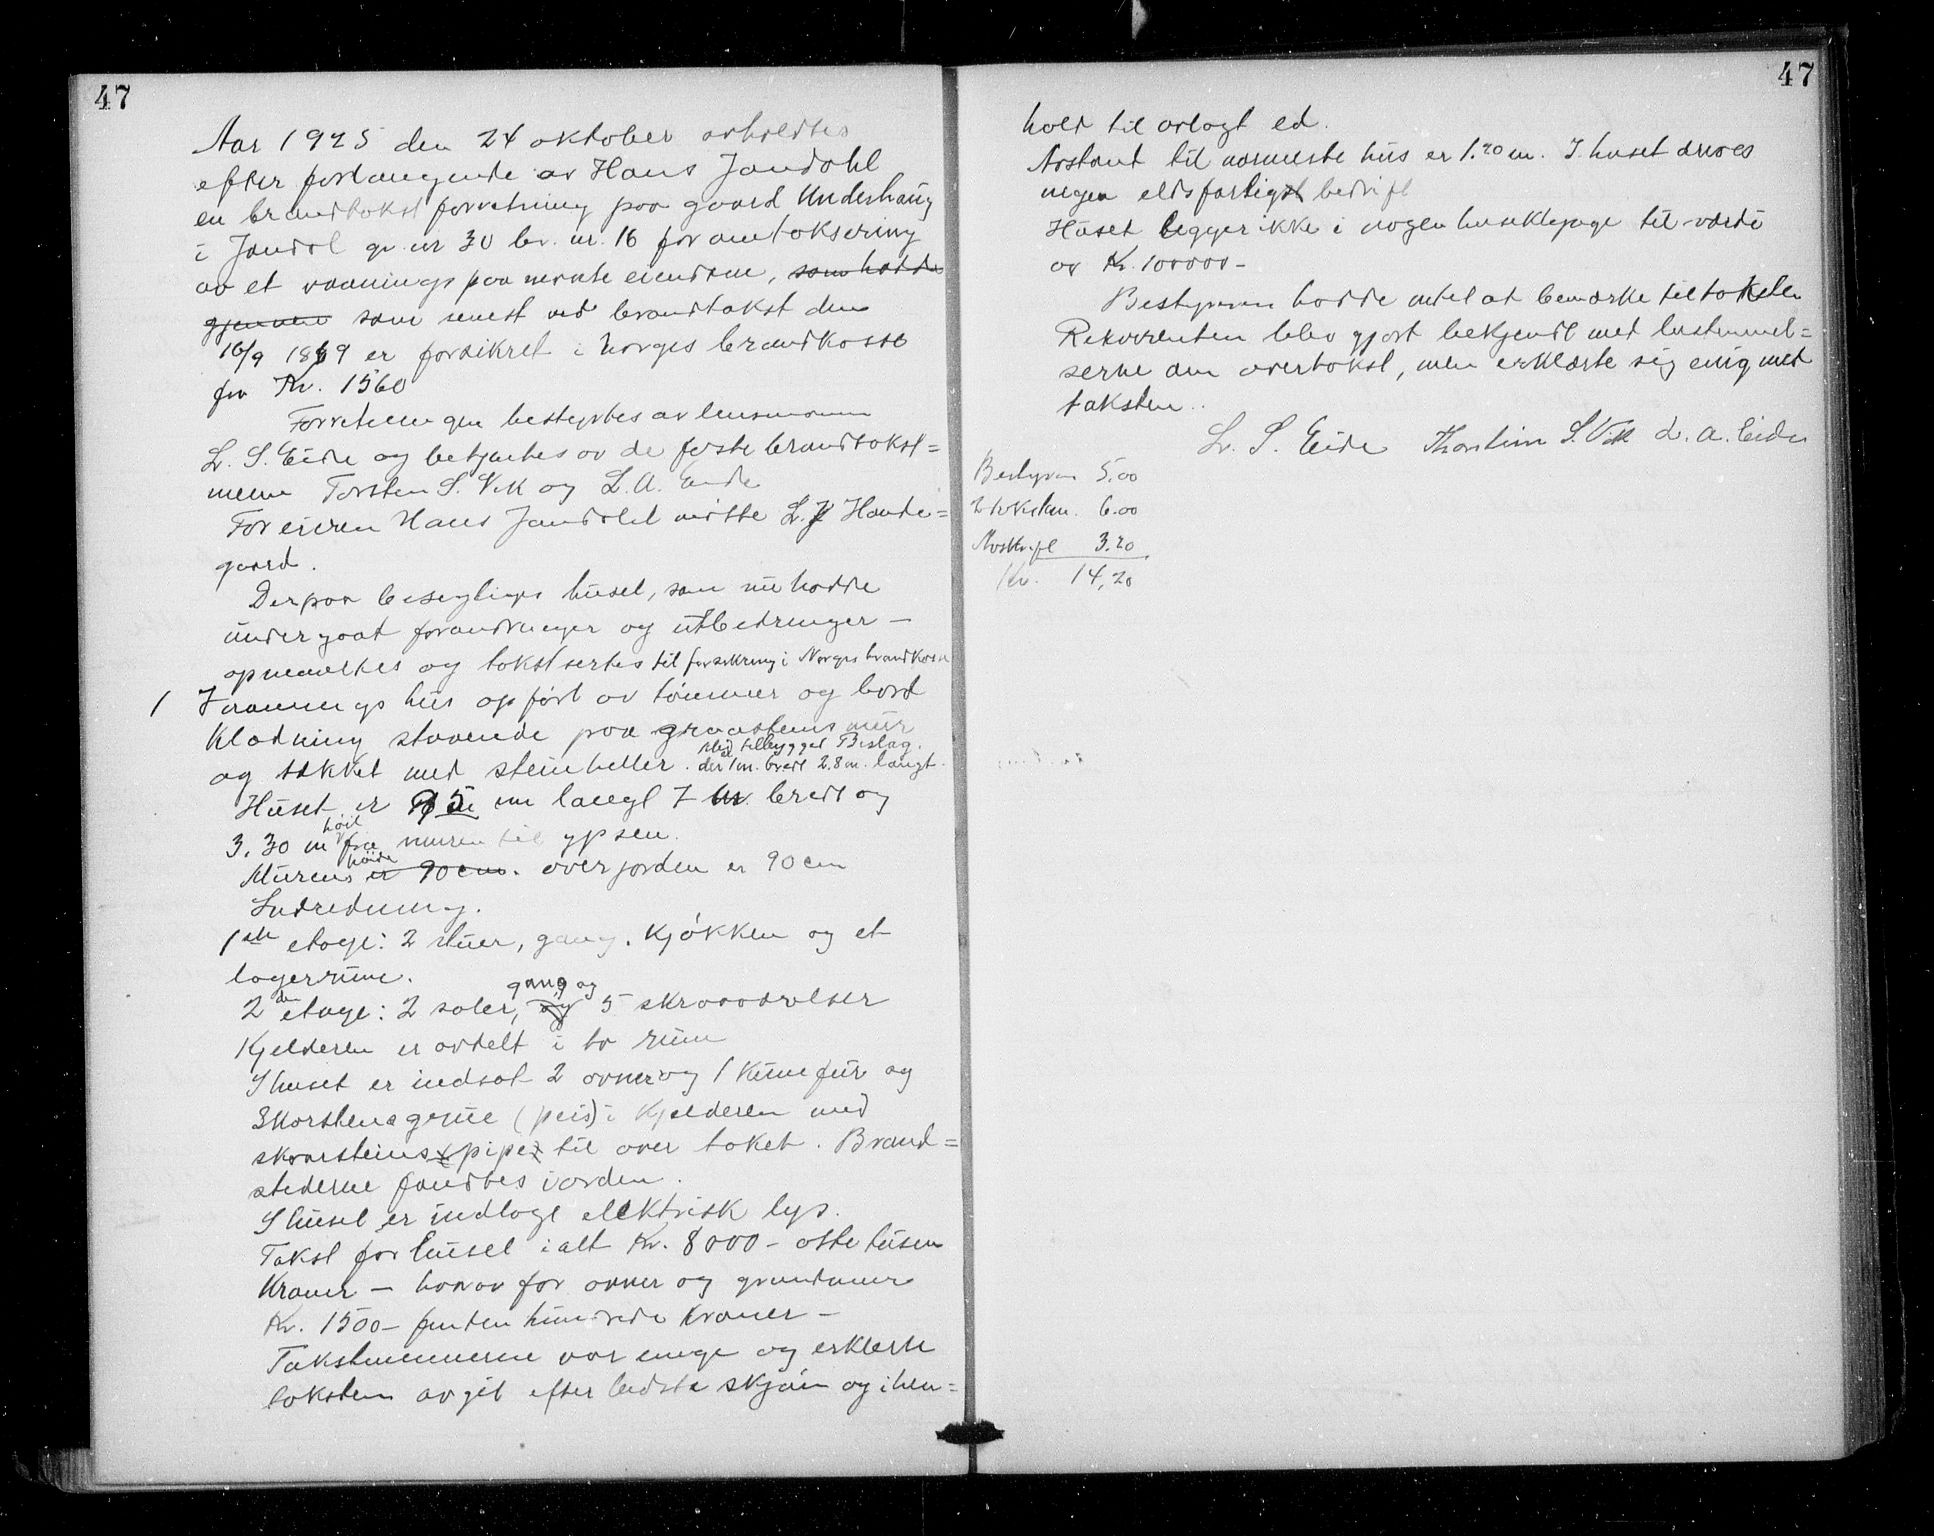 47
Aar 1925 den 24 oktober avholdtes
efter forlangende av Hans Jondahl
en brandtakst forretning paa gaard Underhaug
i Jondal gr. nr 30 br. nr. 16 for omtaksering
av et vaanings paa nevnte eiendom, som hadde
gjennem som senest ved brandtakst den
16/9 1869 er forsikret i Norges brandkasse
for Kr. 1560
Forretningen bestyrtes av lensmann
L. S. Eide og betjentes av de faste brandtakst=
menn Torsten S. Vik og L. A. Eide
For eieren Hans Jondahl møtte L. J Hande=
gaard.
Derpaa besegtiges huset, som nu hadde
undergaat forandringer og utbedringer —
opmaaltes og takstsertes til forsikring i Norges brandkasse
1 Ivaanings hus opført av tømmer og bord
Klædning staaende paa graastens mur
Med tilbygget Bislag.
og tækket med steinheller. der er 1 m. bredt 2.8 m. langt.
Huset er 5 m langt 7 m. bredt og
høit
3.30 m fra muren til gypsen.
høide
Murens er 90 cm. over jorden er 90 cm
Indredning.
1ste etage: 2 stuer, gang, Kjøkken og et
lagerrum.
gang og
2den etage: 2 saler, og 5 skraaværelser
Kjelderen er avdelt i to rum
I huset er indsat 2 ovner og 1 Kumfur og
Skorstensgrue (peis) i Kjelderen med
skorsteinspipe til over taket. Brand=
stederne fandtes i orden.
I huset er indlagt elektrisk lys.
Takst for huset i alt Kr. 8000 – otte tusen
Kroner — hvorav for ovner og grundmur
Kr. 1500 – femten hundrede kroner –
Takstmennerne var enige og erklerte
taksten avgit efter bedste skjøn og i hen=
47
hold til avlagt ed.
Avstand til nærmeste hus er 1.20 m. I huset drives
ingen eldsfarligst bedrift
Huset ligger ikke i nogen husklynge til værdi
av Kr. 100000 –
Bestyreren hadde intet at bemærke til taksten
Rekvirenten blev gjort bekjendt med bestemmel=
serne om overtakst, men erklærte sig enig med
taksten.
L. S. Eide Thorstein S. Vik L. A. Eide
Bestyren 5.00
2 takstm. 6.00
Avskrift 3.20
Kr. 14,20